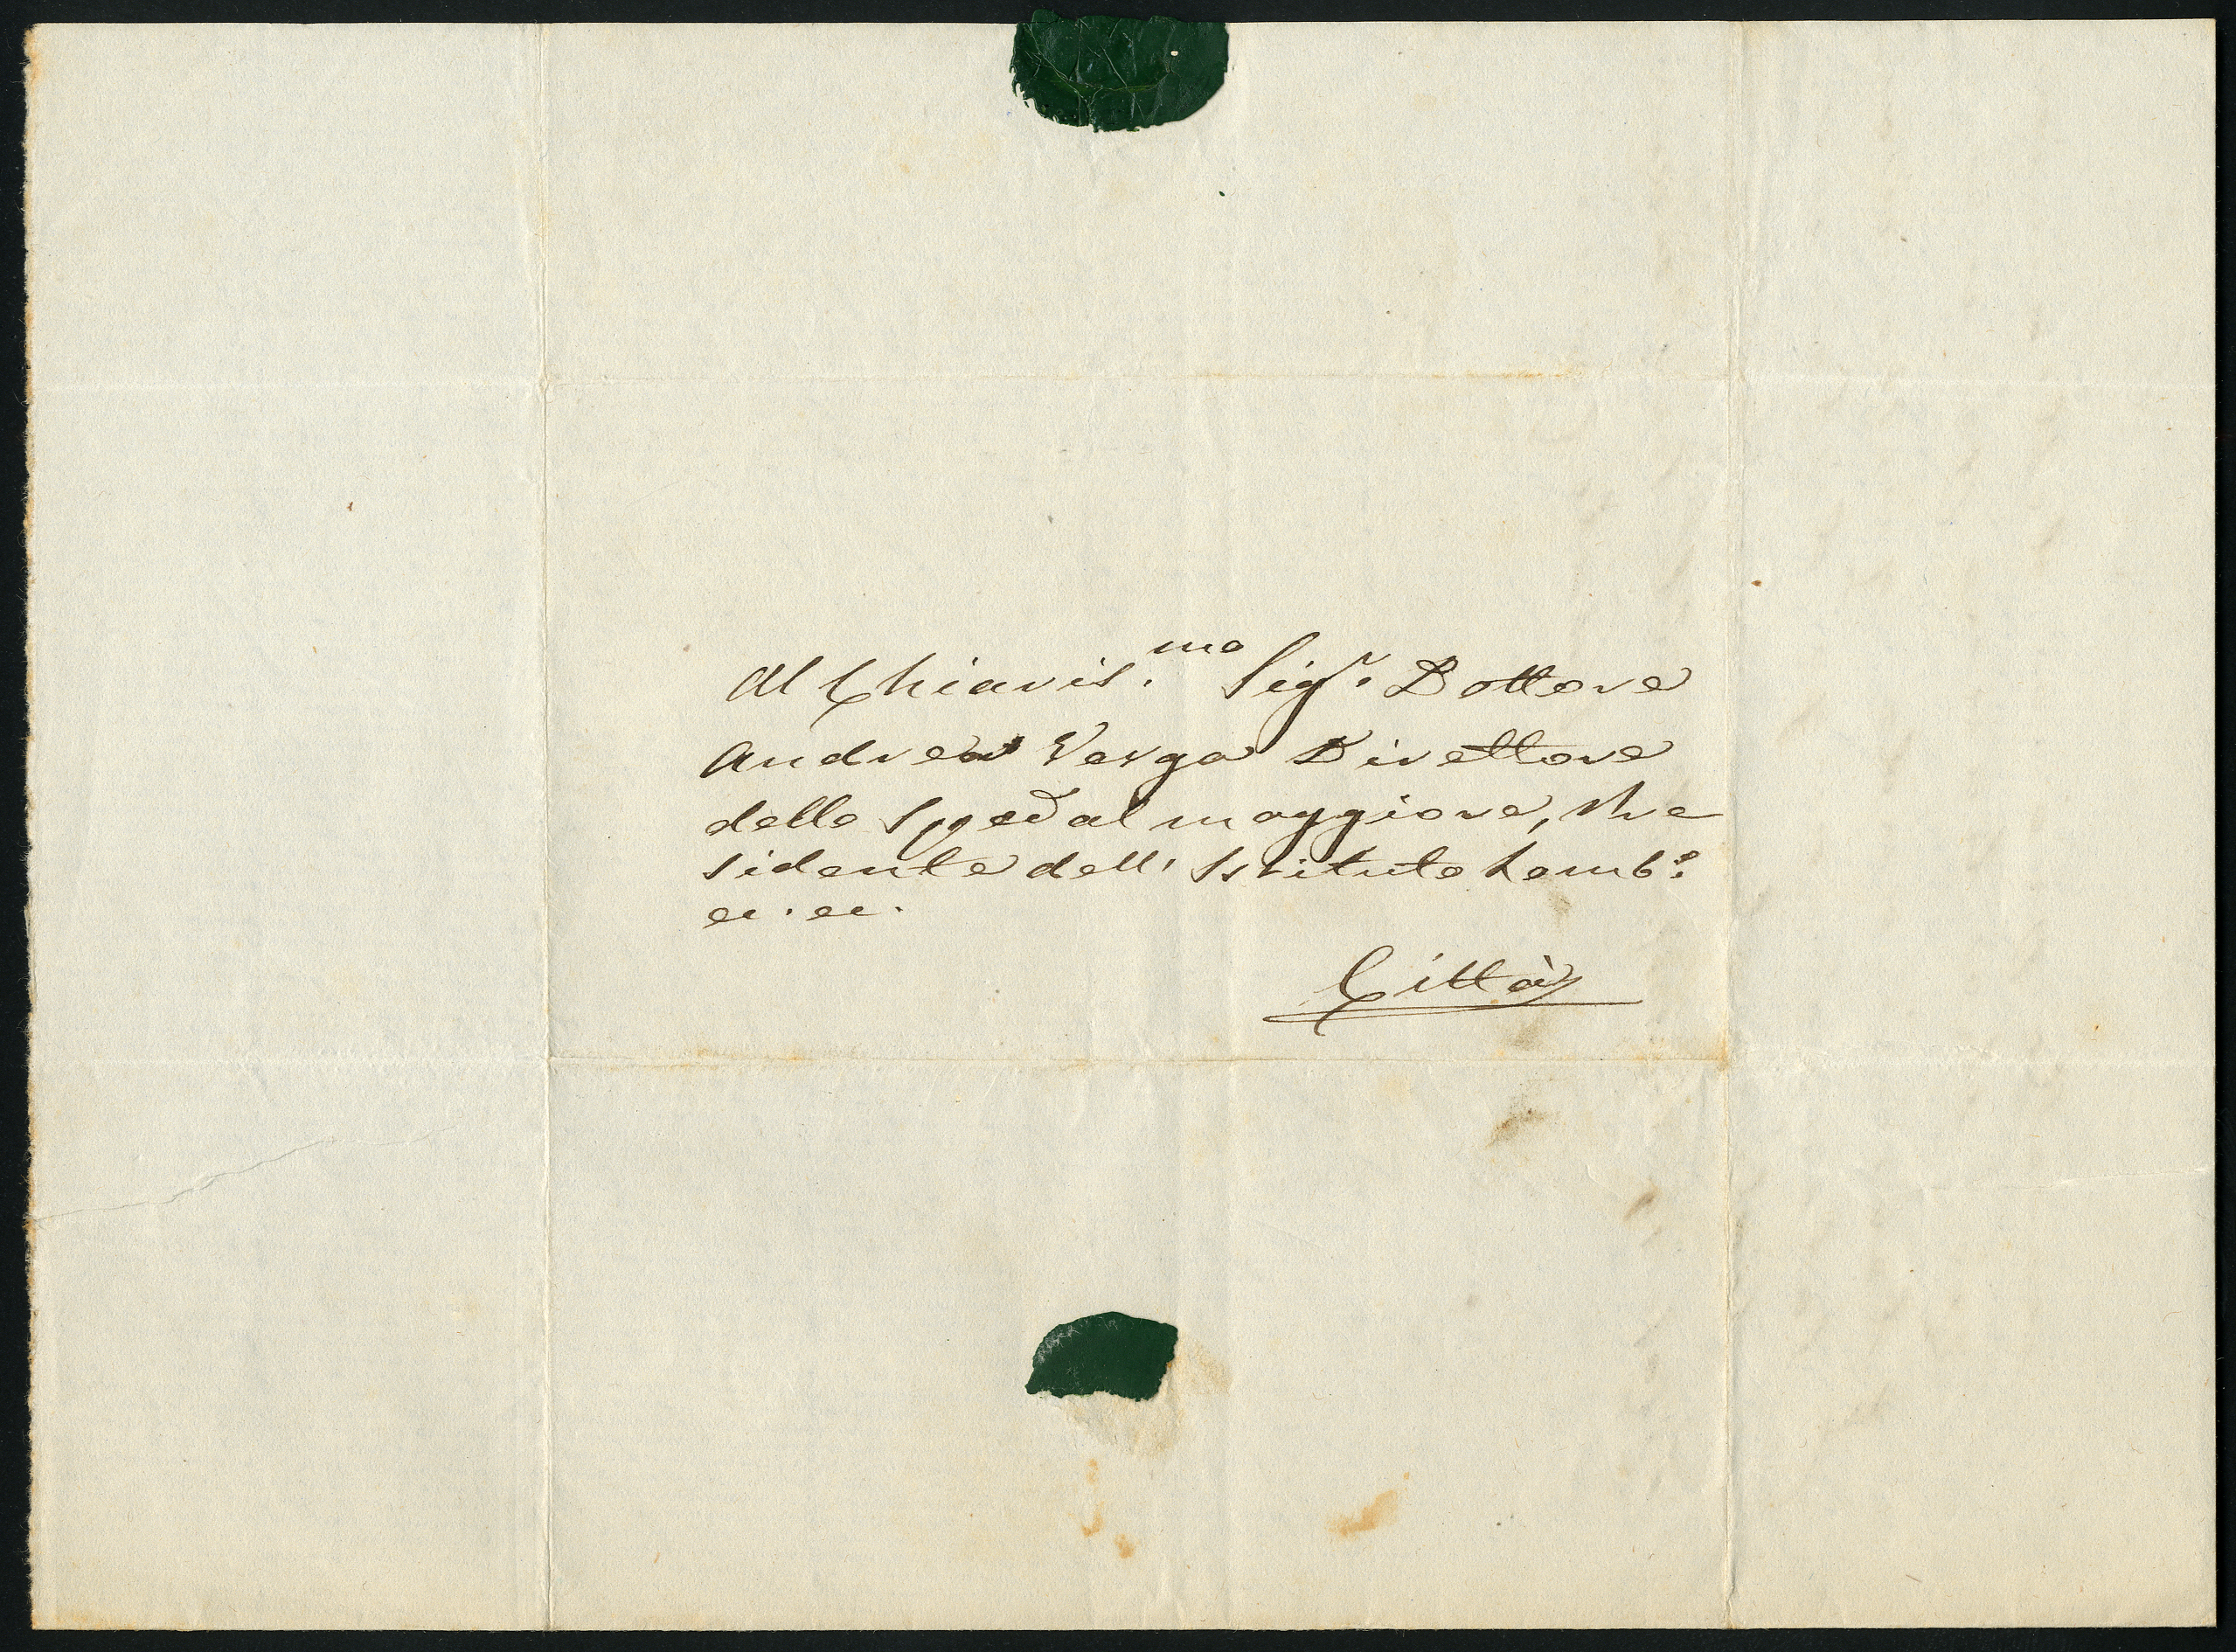 Al Chiaris.mo Sigr. Dottore
Andrea Verga Direttore
dello Spedal maggiore, Pre
sidente dell' Istituto Lomb.o
ec. ec.
Città